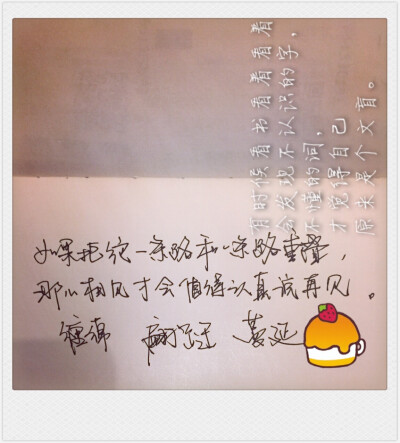 有时候看书看着看着
会发现不认识的字,
不懂的词,
才觉得自己
原来是个文盲。
如果拒绝一条路和一条路重叠,
那么相见才会值得认真说再见。
缠绵 蔓延